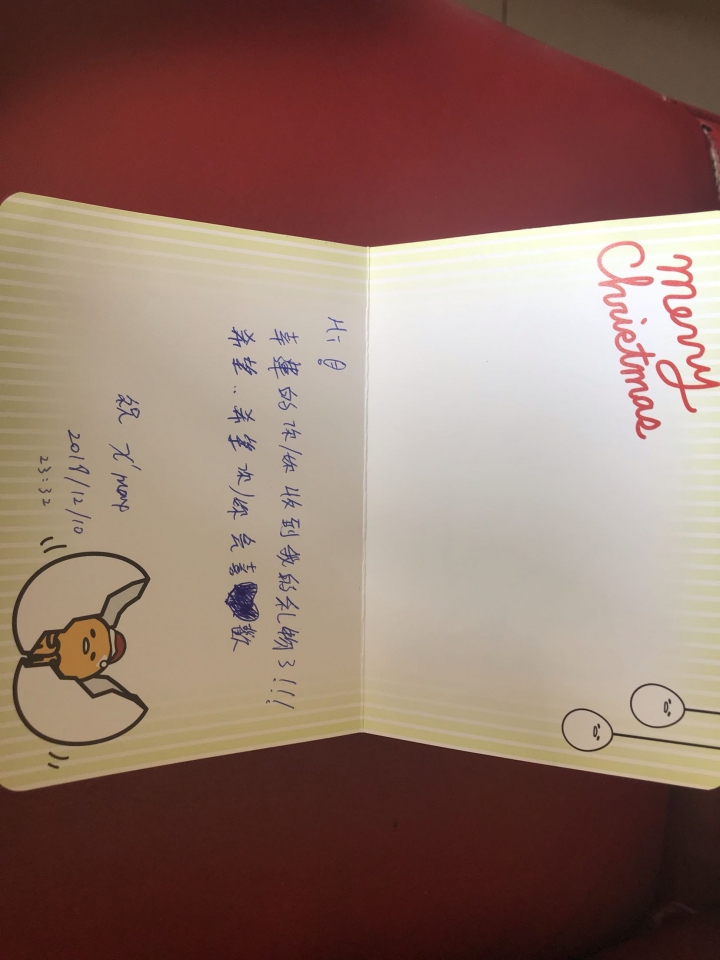 Merry
Christmas
Hi!
幸運的你/妳收到我的礼物了!!!
希望..希望你/妳会喜歡
祝 X'mas
2019/12/10
23:32